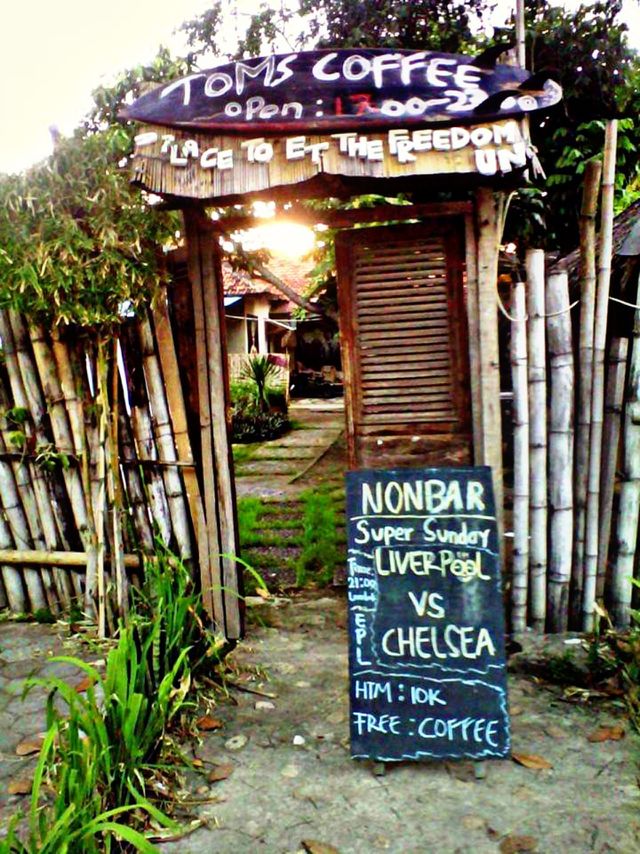 TOMS COFFEE
OPen :
PLACE TO ET THE FREEDOM
UN
NONBAR
Super Sunday
LIVERPOOL
VS
CHELSEA
Time
21:00
EPL
HTM : 10K
FREE : COFFEE